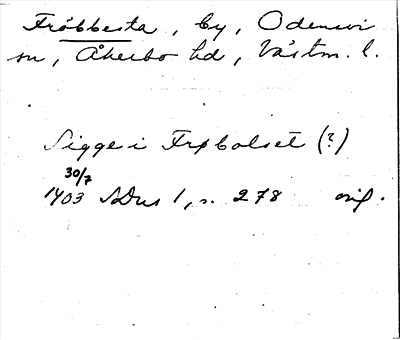 Fröbbesta, by, Odensvi
sn, Åkerbo hd, Västm. l.
Sigge i Frøbolset (?)
30/7
1403 SDns 1, s. 278 orig.